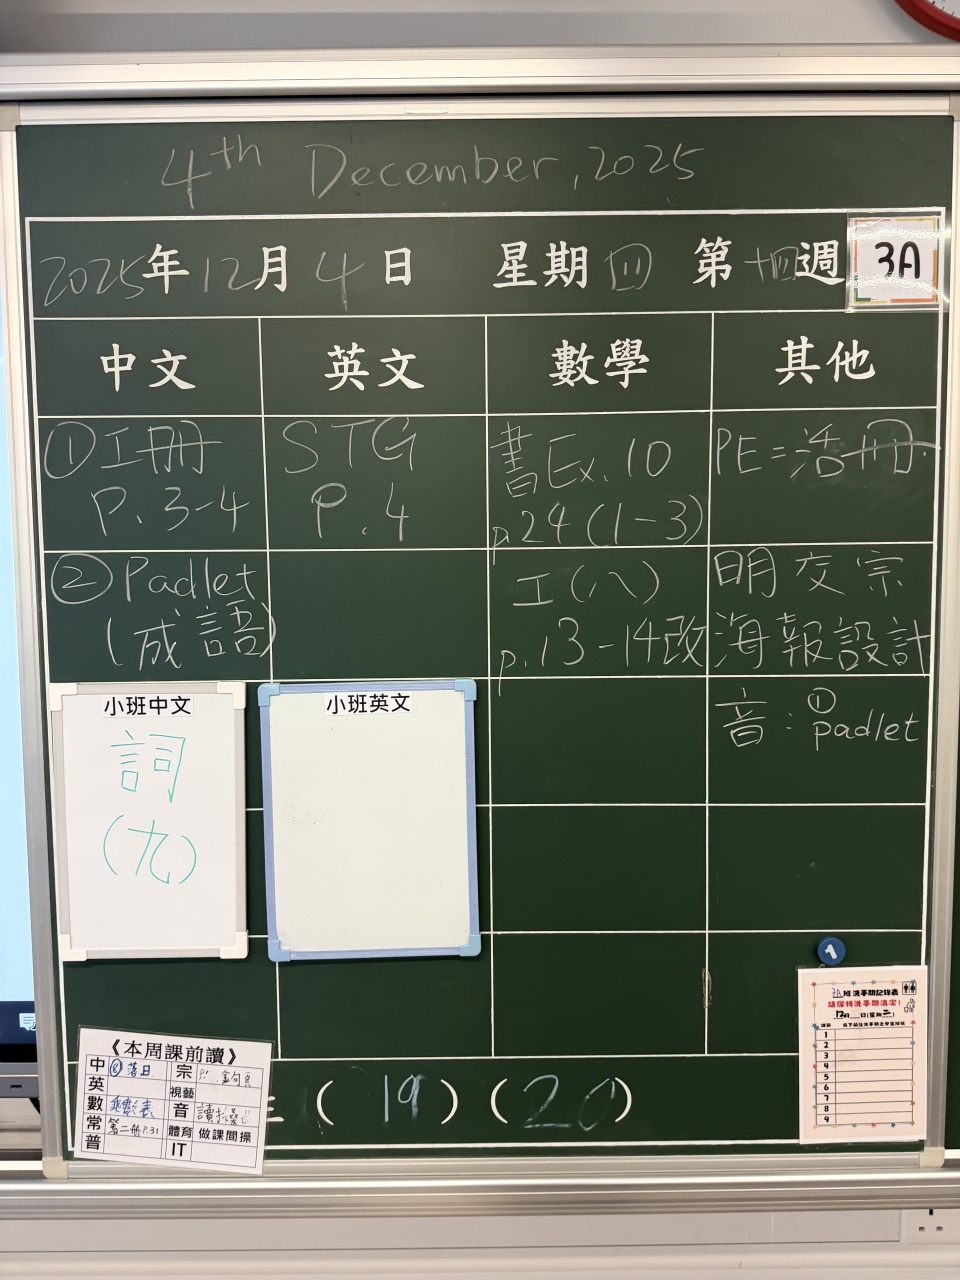 4th December, 2025
2025年12月4日 星期四 第十四週 3A
中文 英文 數學 其他
①工冊
P. 3-4
STG
P. 4
書Ex. 10
p.24 (1-3)
PE=活冊.
②Padlet
(成語)
工(八)
p.13-14改
明交宗
海報設計
小班中文
詞
(九)
小班英文
音:①padlet
1
《本周課前讀》
中 ⑧落日 宗
英 視藝
數 乘數表 音
常 第二冊P.31 體育 做課間操
普 IT
(19) (20)
3A班洗手間記錄表
請保持洗手間清潔!
12月 日(星期二)
1
2
3
4
5
6
7
8
9